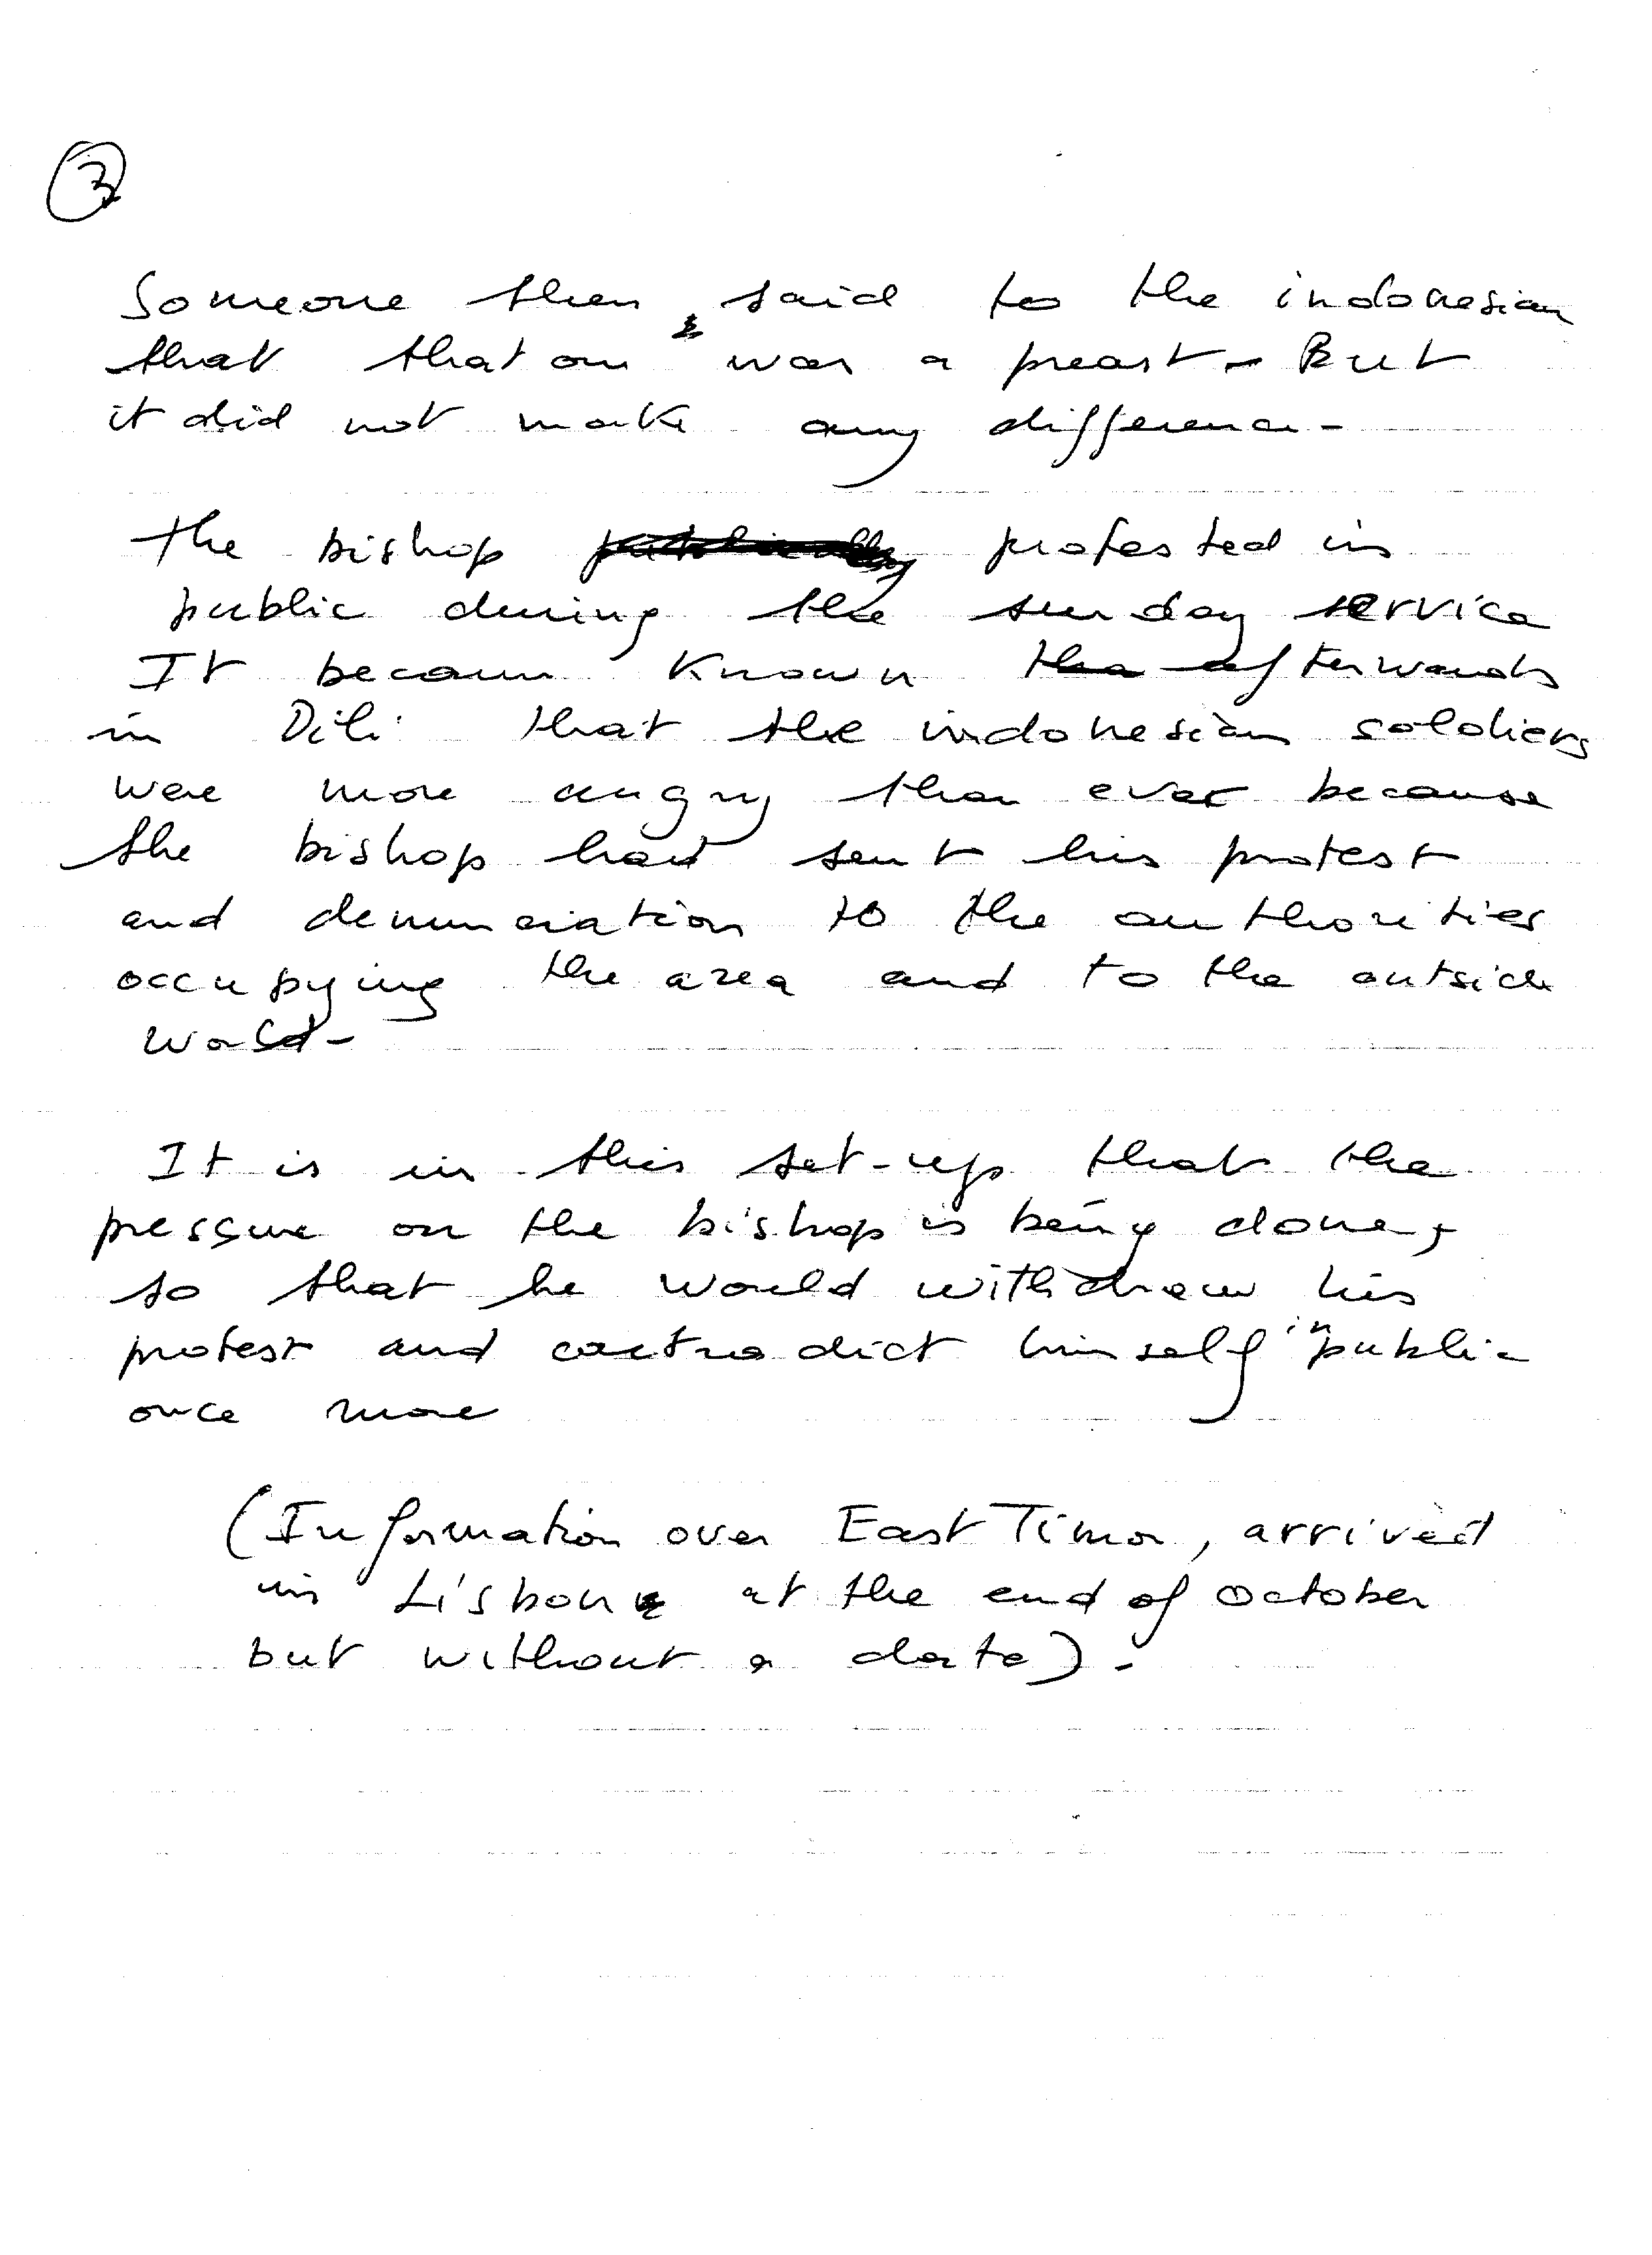 3
Someone then said to the indonesian
that that one was a preast - But
it did not make any difference -
the bishop protested in
public during the sunday service
It became known afterwards
in Dili that the indonesian soldiers
were more angry than ever because
the bishop had sent his protest
and denunciation to the authorities
occupying the area and to the outside
world -
It is in this set-up that the
pressure on the bishop is being done,
so that he would withdraw his
protest and contradict himself in public
once more
(Information over East Timor, arrived
in Lisbon at the end of october
but without a date). -